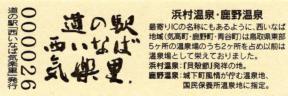 道の駅「西いなば気楽里」発行
000026
道の駅
西いなば
気楽里
浜村温泉・鹿野温泉
最寄りICの名称にもあるように、西いなば
地域(気高町・鹿野町・青谷町)は鳥取県東部
5ヶ所の温泉場のうち2ヶ所を占め以前は
湯治場として栄えておりました。
浜村温泉：『貝殻節』発祥の地。
鹿野温泉：城下町風情が佇む温泉地、
国民保養温泉地に指定。